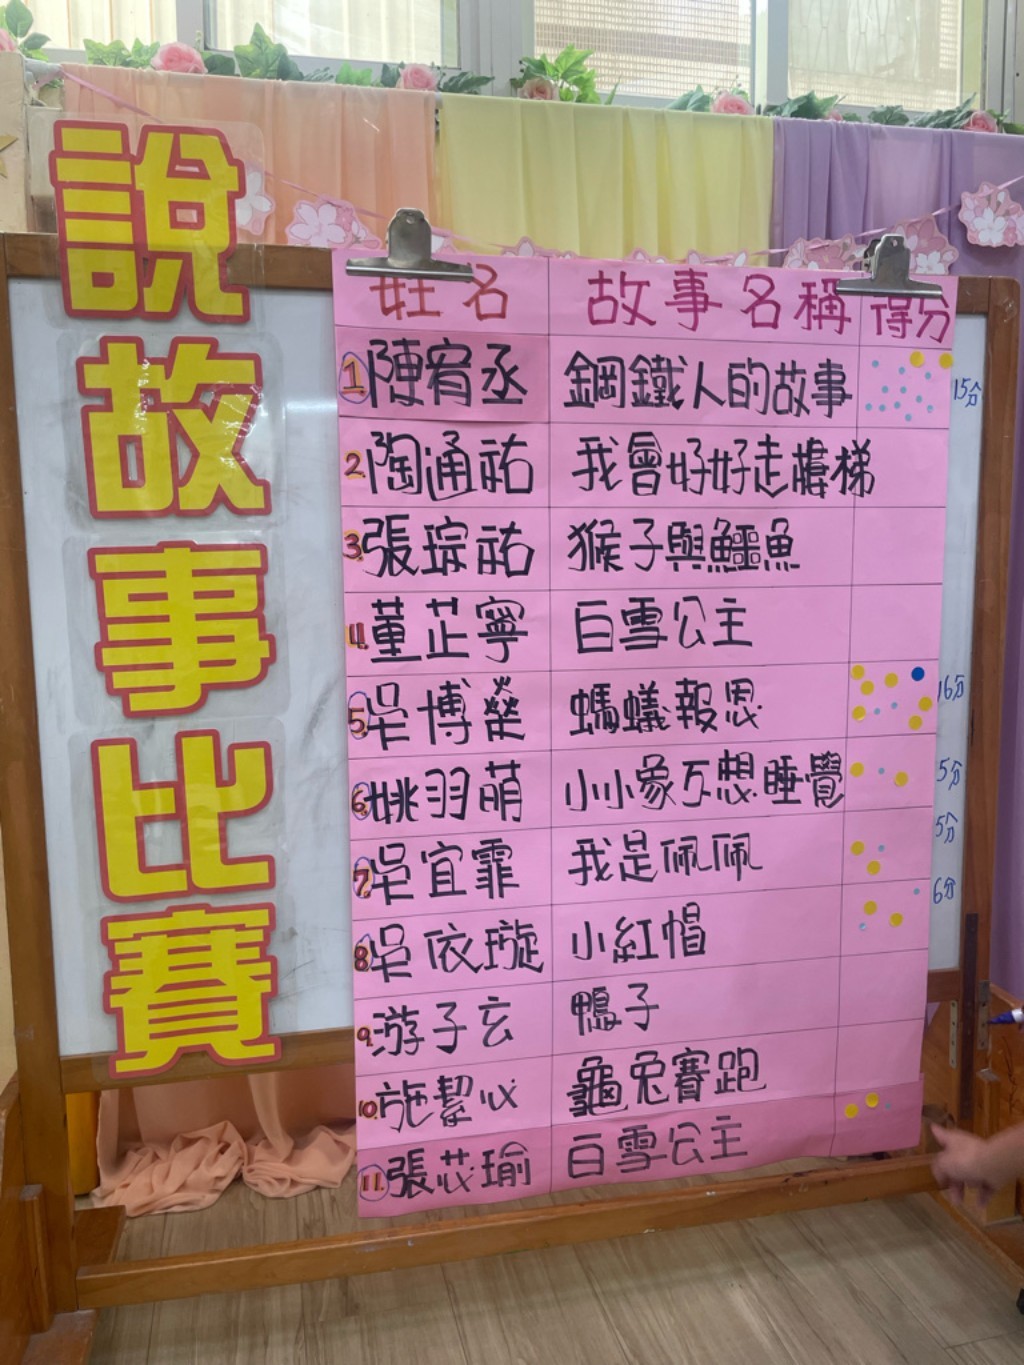 說故事比賽
姓名 故事名稱 得分
1 陳宥丞 鋼鐵人的故事 15分
2 陶通祐 我會好好走樓梯
3. 張琮祐 猴子與鱷魚
4. 董芷寧 白雪公主
5. 吳博燊 螞蟻報恩 16分
6. 姚羽萌 小小象不想睡覺 5分
7. 吳宜霏 我是佩佩 5分
8. 吳依璇 小紅帽 6分
9. 游子玄 鴨子
10. 施絜心 龜兔賽跑
11. 張芯瑜 白雪公主